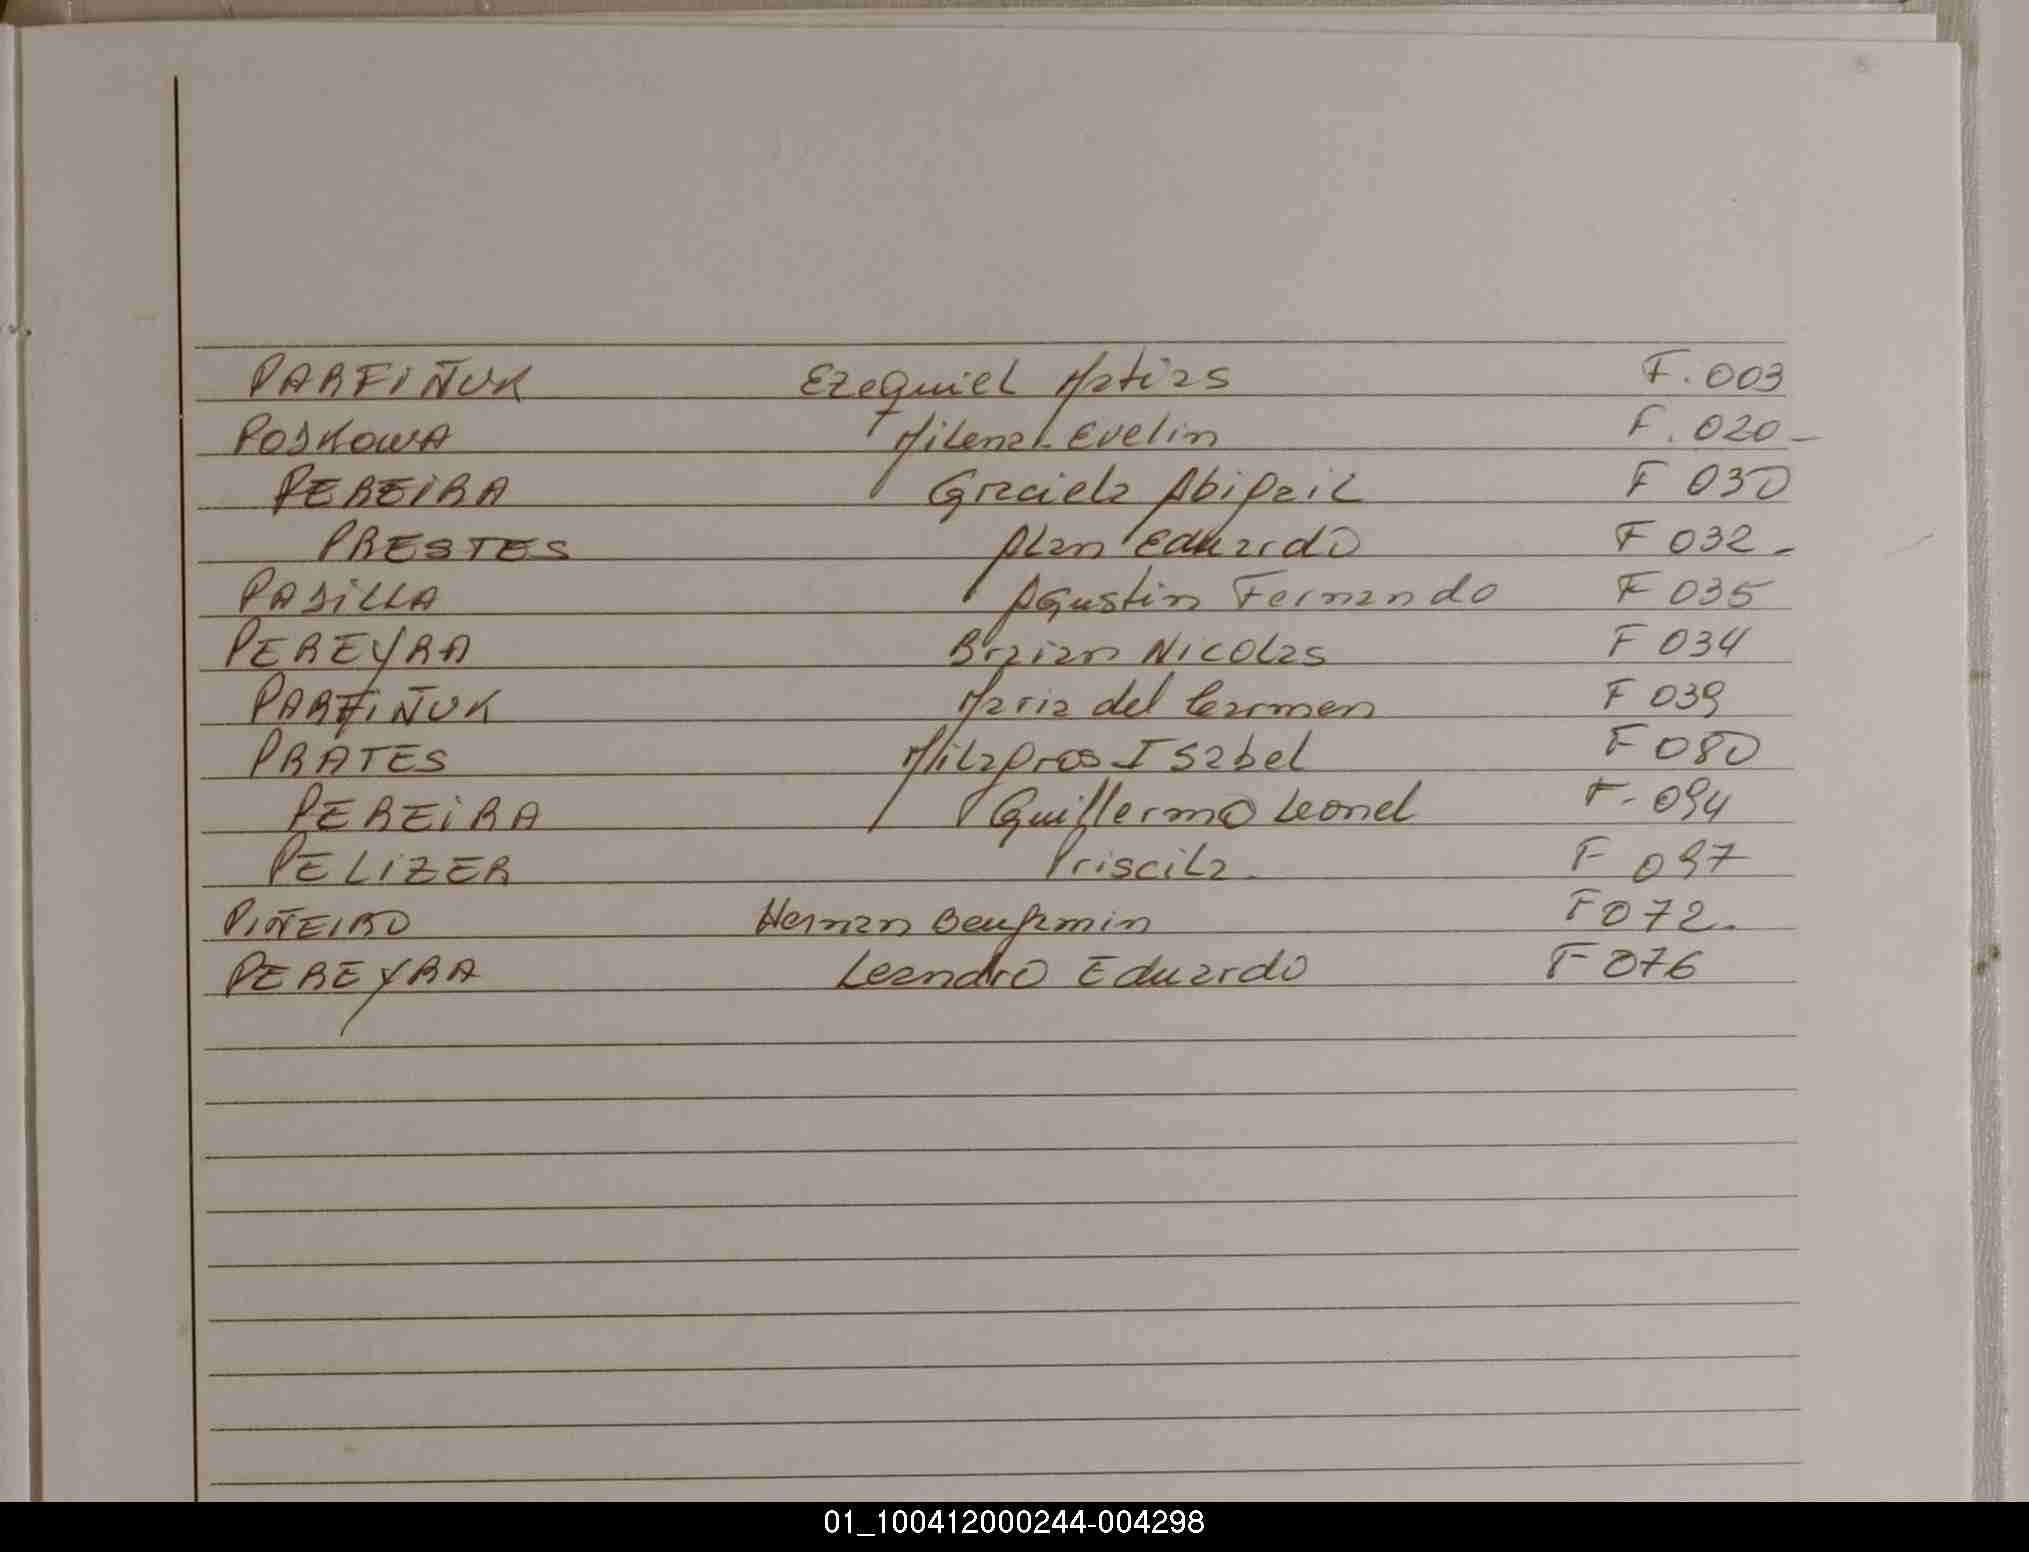 PARFIÑUK Ezequiel Matias F. 003
POSKOWA Milena Evelin F. 020-
PEREIRA Graciela Abigail F 030
PRESTES Alan Eduardo F 032-
PADILLA Agustin Fernando F 035
PEREYRA Braian Nicolas F 034
PARFIÑUK Maria del Carmen F 039
PRATES Milagros Isabel F 080
PEREIRA Guillermo Leonel F- 094
PELIZER Priscila F 097
PIÑEIRO Hernan Benjamin F 072.
PEREYRA Leandro Eduardo F 076
01_100412000244-004298